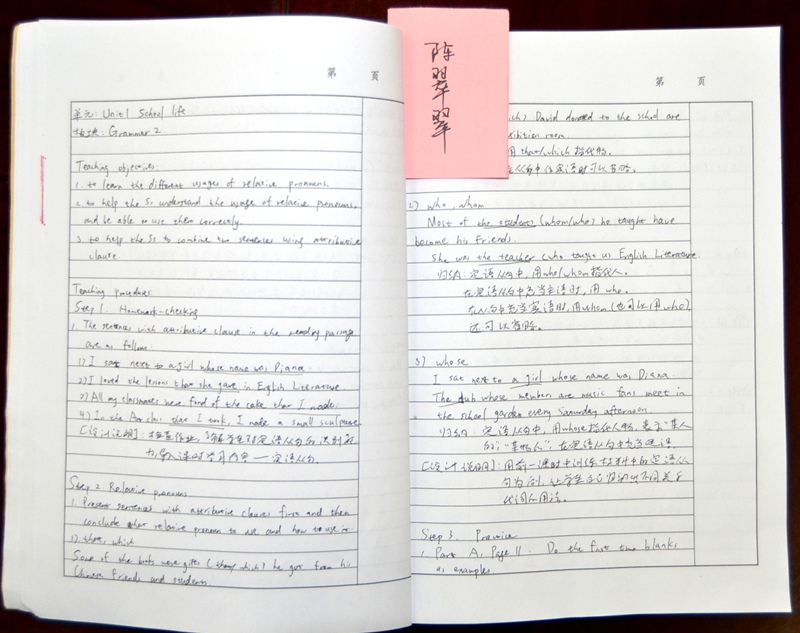 第 页
单元: Unit 1 School life
板块: Grammar 2
Teaching objectives:
1. to learn the different usages of relative pronouns.
2. to help the Ss understand the usage of relative pronouns,
and be able to use them correctly.
3. to help the Ss to combine two sentences using attributive
clause.
Teaching procedures:
Step 1. Homework-checking
1. The sentences with attributive clause in the reading passage
are as follows:
1) I sat next to a girl whose name was Diana.
2) I loved the lessons that she gave in English Literature
3) All my classmates were fond of the cake that I made.
4) In the Art class that I took, I made a small sculpture
[设计说明]: 检查作业,了解学生对定语从句的
导入课时学习内容——定语从句.
Step 2 Relative pronouns
1. Present sentences with attributive clauses first and then
conclude what relative pronoun to use and how to use it.
1). that, which
Some of the books were gifts (that/which) he got from his
Chinese friends and students.
陈翠翠
第 页
David donated to the school are
room.
用that/which指代物.
中作宾语时可以省略.
2) who, whom
Most of the students (whom/who) he taught have
become his friends.
She was the teacher (who taught us English Literature.
归纳: 定语从句中, 用who/whom指代人.
在定语从句中充当主语时, 用who.
在从句中充当宾语时, 用whom (也可以用who),
还可以省略.
3) whose
I sat next to a girl whose name was Diana.
The club whose members are music fans meet in
the school garden every Saturday afternoon.
归纳: 定语从句中, 用whose指代人/物, 表示"某人
的","某物的", 在定语从句中充当定语.
[设计说明]: 用前一课时中训练材料中的定语从
句为例, 让学生自己归纳出不同关系
代词的用法.
Step 3. Practice
1. Part A, Page 11. Do the first two blanks
as examples